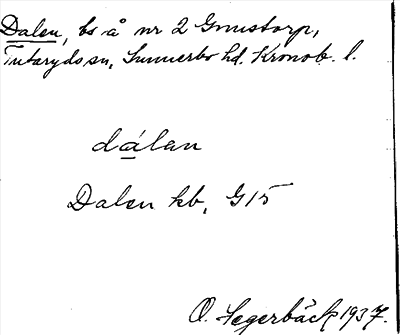 Dalen, bs å nr 2 Gnustorp,
Tutaryds sn, Sunnerbo hd. Kronob. l.
dálan
Dalen kb, G15
O. Segerbäck 1937.